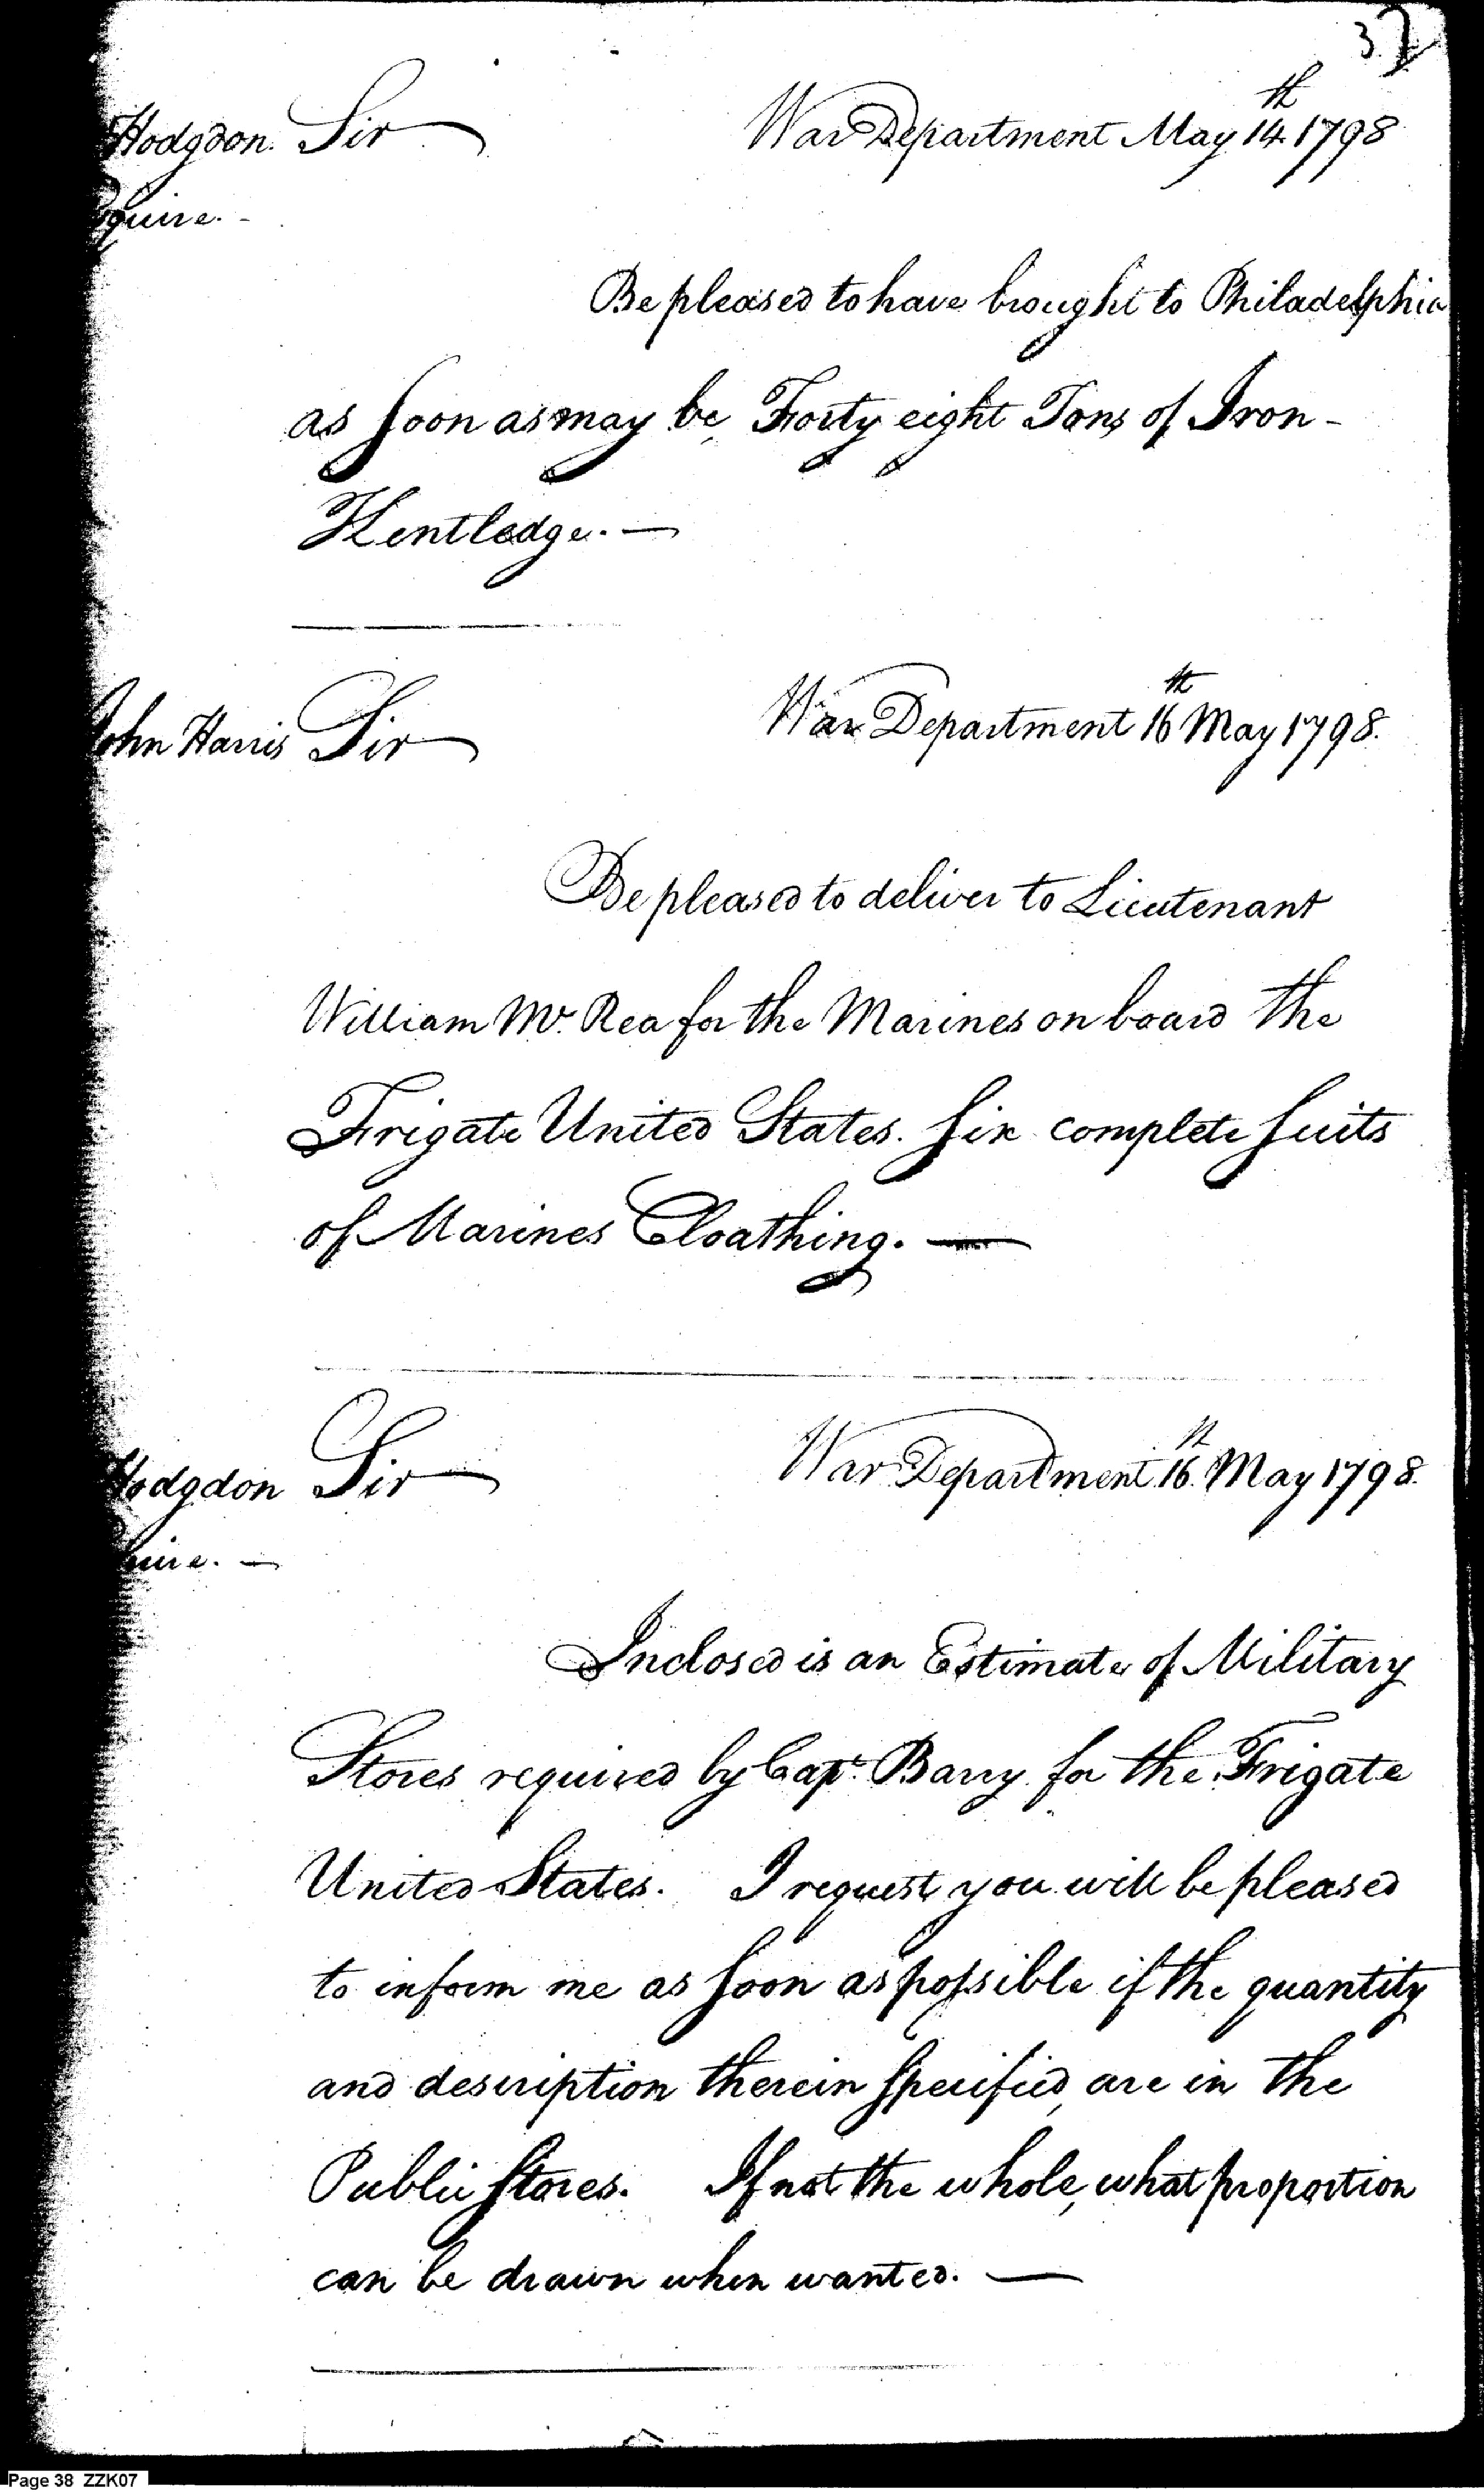 32
Hodgdon. Sir War Department May 14th 1798
quire. -
Be pleased to have brought to Philadelphia
as soon as may be, Forty eight Tons of Iron -
Kentledge. —
John Harris Sir War Department 16th May 1798.
Be pleased to deliver to Lieutenant
William Mc. Rea for the Marines on board the
Frigate United States. Six complete suits
of Marines Cloathing. —
Hodgdon Sir War Department 16th May 1798.
uire. —
Inclosed is an Estimate of Military
Stores required by Capt. Barry for the Frigate
United States. I request you will be pleased
to inform me as soon as possible if the quantity
and description therein specified, are in the
Public Stores. If not the whole, what proportion
can be drawn when wanted. —
Page 38 ZZK07